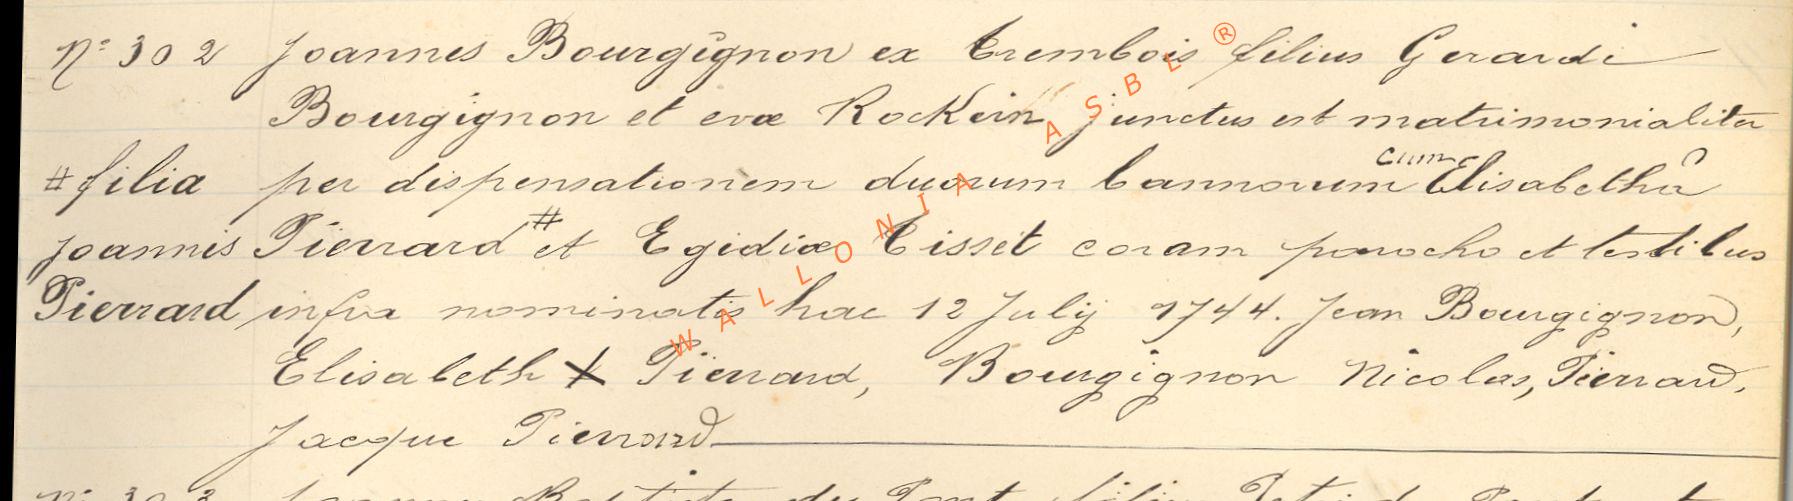 N° 302 Joannes Bourgignon ex Trembois filius Gerardi
Bourgignon et evæ Rockein junctus est matrimonialiter
# filia per dispensationem duorum bannorum cum Elisabethâ
Joannis Pierrard # et Egidiæ Tisset coram parocho et testibus
Pierrard infra nominatis hac 12 Julij 1744. Jean Bourgignon,
Elisabeth X Pierrard, Bourgignon Nicolas, Pierrard,
Jacque Pierrard
N° 303
WALLONIA ASBL ®